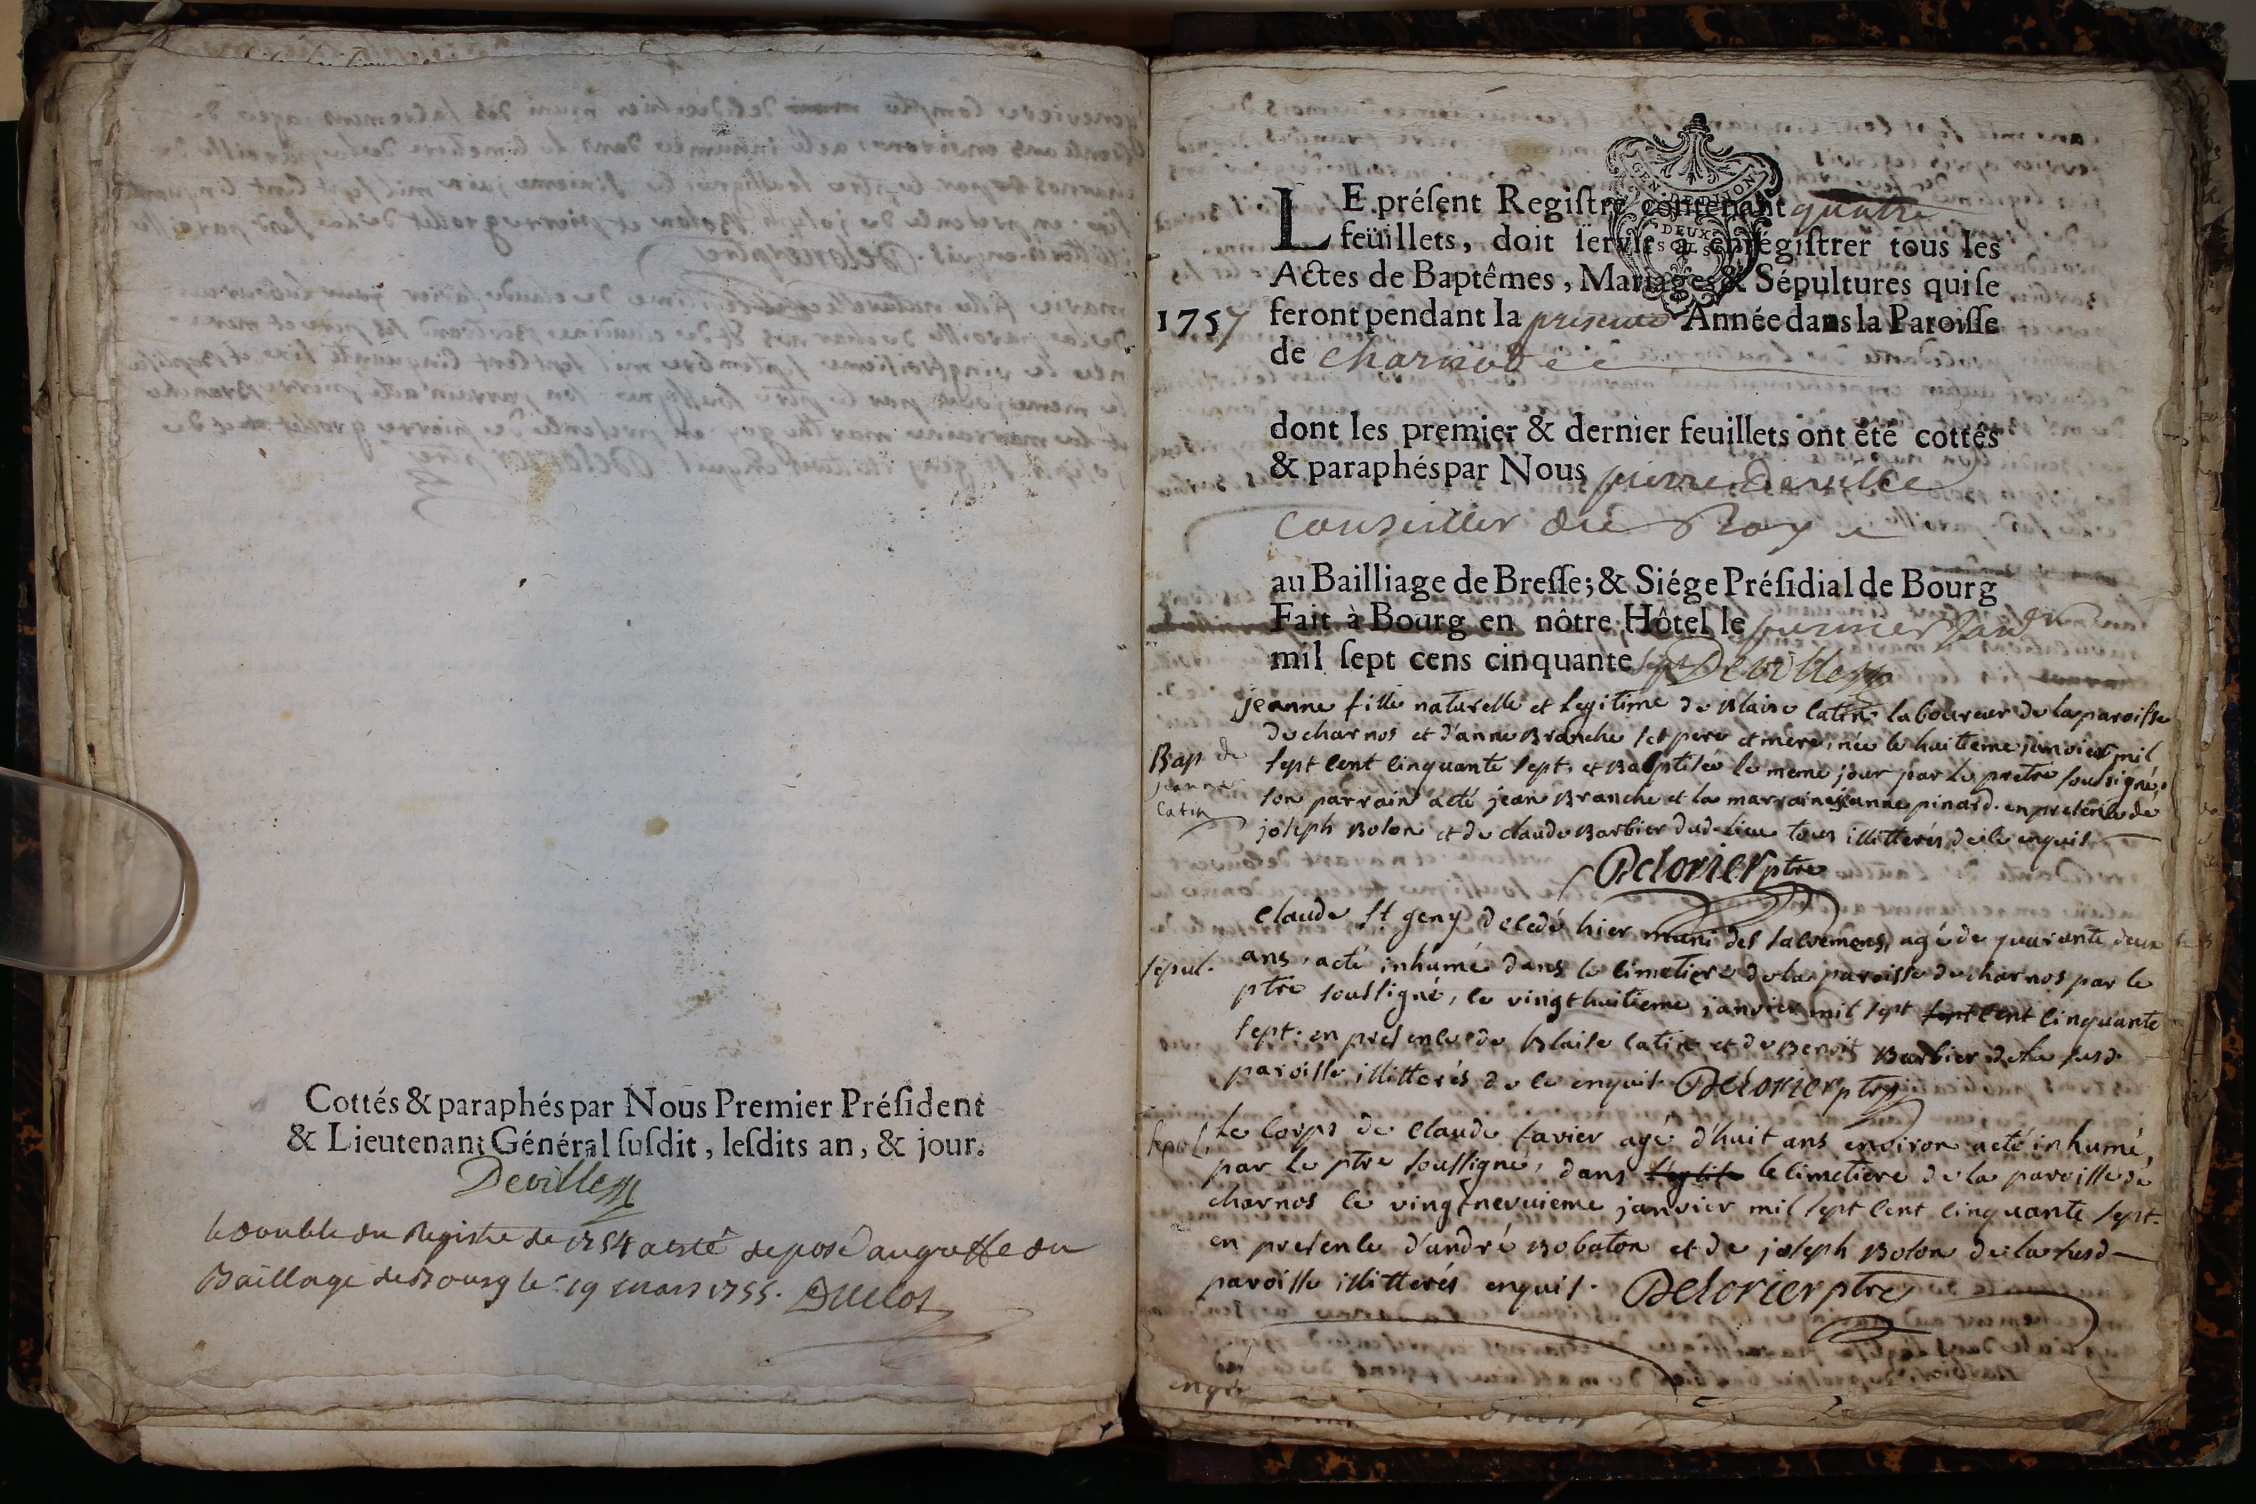 Cottés & paraphés par Nous Premier Préſident
& Lieutenant Général ſuſdit, leſdits an, & jour.
Deville
le double du Registre de 1754 a esté deposé au greffe du
Baillage de Bourg le 19 mars 1755. Duclos
GEN. DE DIJON
DEUX
SOLS
LE préſent Regiſtre contenant quatre
feüillets, doit ſervir à enrégiſtrer tous les
Actes de Baptêmes, Mariages & Sépultures qui ſe
1757 feront pendant la presente Année dans la Paroiſſe
de charnod
dont les premier & dernier feuillets ont été cottés
& paraphés par Nous pierre Deville
Conseiller du Roy
au Bailliage de Breſſe; & Siége Préſidial de Bourg
Fait à Bourg en nôtre Hôtel le premier Janv
mil ſept cens cinquante sept Deville
jeanne fille naturelle et legitime de Blaise Catin laboureur de la paroisse
de charnos et d'anne Branche ses pere et mere, née le huitieme janvier mil
Bap de jeanne Catin
sept cent cinquante sept, et Baptisée le meme jour par le pretre soussigné,
son parrain a eté jean Branche et la marraine jeanne pinard. en presence de
joseph Bolon et de claude Barbier dud. lieu tous illitterés de ce enquis
Delorier ptre
Claude St geny decedé hier muni des sacremens, agé de quarante deux
sepul.
ans, a eté inhumé dans le cimetiere de la paroisse de charnos par le
ptre soussigné, le vingt huitieme janvier mil sept sept cent cinquante
sept. en presence de Blaise Catin et de Benoit Barbier de la susd.
paroisse illitterés de ce enquis. Delorier ptre
sepul.
Le Corps de Claude Favier agé d'huit ans environ a eté inhumé,
par le ptre soussigné, dans l'eglise le cimetiere de la paroisse de
charnos le vingt neuvieme janvier mil sept cent cinquante sept.
en presence d'andré Bobaton et de joseph Bolon de la susd
paroisse illitterés enquis. Delorier ptre